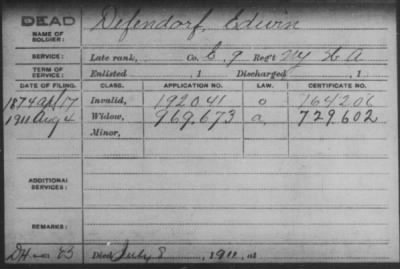 DEAD
NAME OF SOLDIER: Defendorf, Edwin
SERVICE: Late rank, Co. E, 9 Reg't NY H A
TERM OF SERVICE: Enlisted , 1 Discharged , 1
DATE OF FILING. CLASS. APPLICATION NO. LAW. CERTIFICATE NO.
1874 apl 17 Invalid, 192041 o 164206
1911 Aug 4 Widow, 969.673 a 729.602
Minor,
ADDITIONAL SERVICES:
REMARKS:
Died July 8, 1911, at